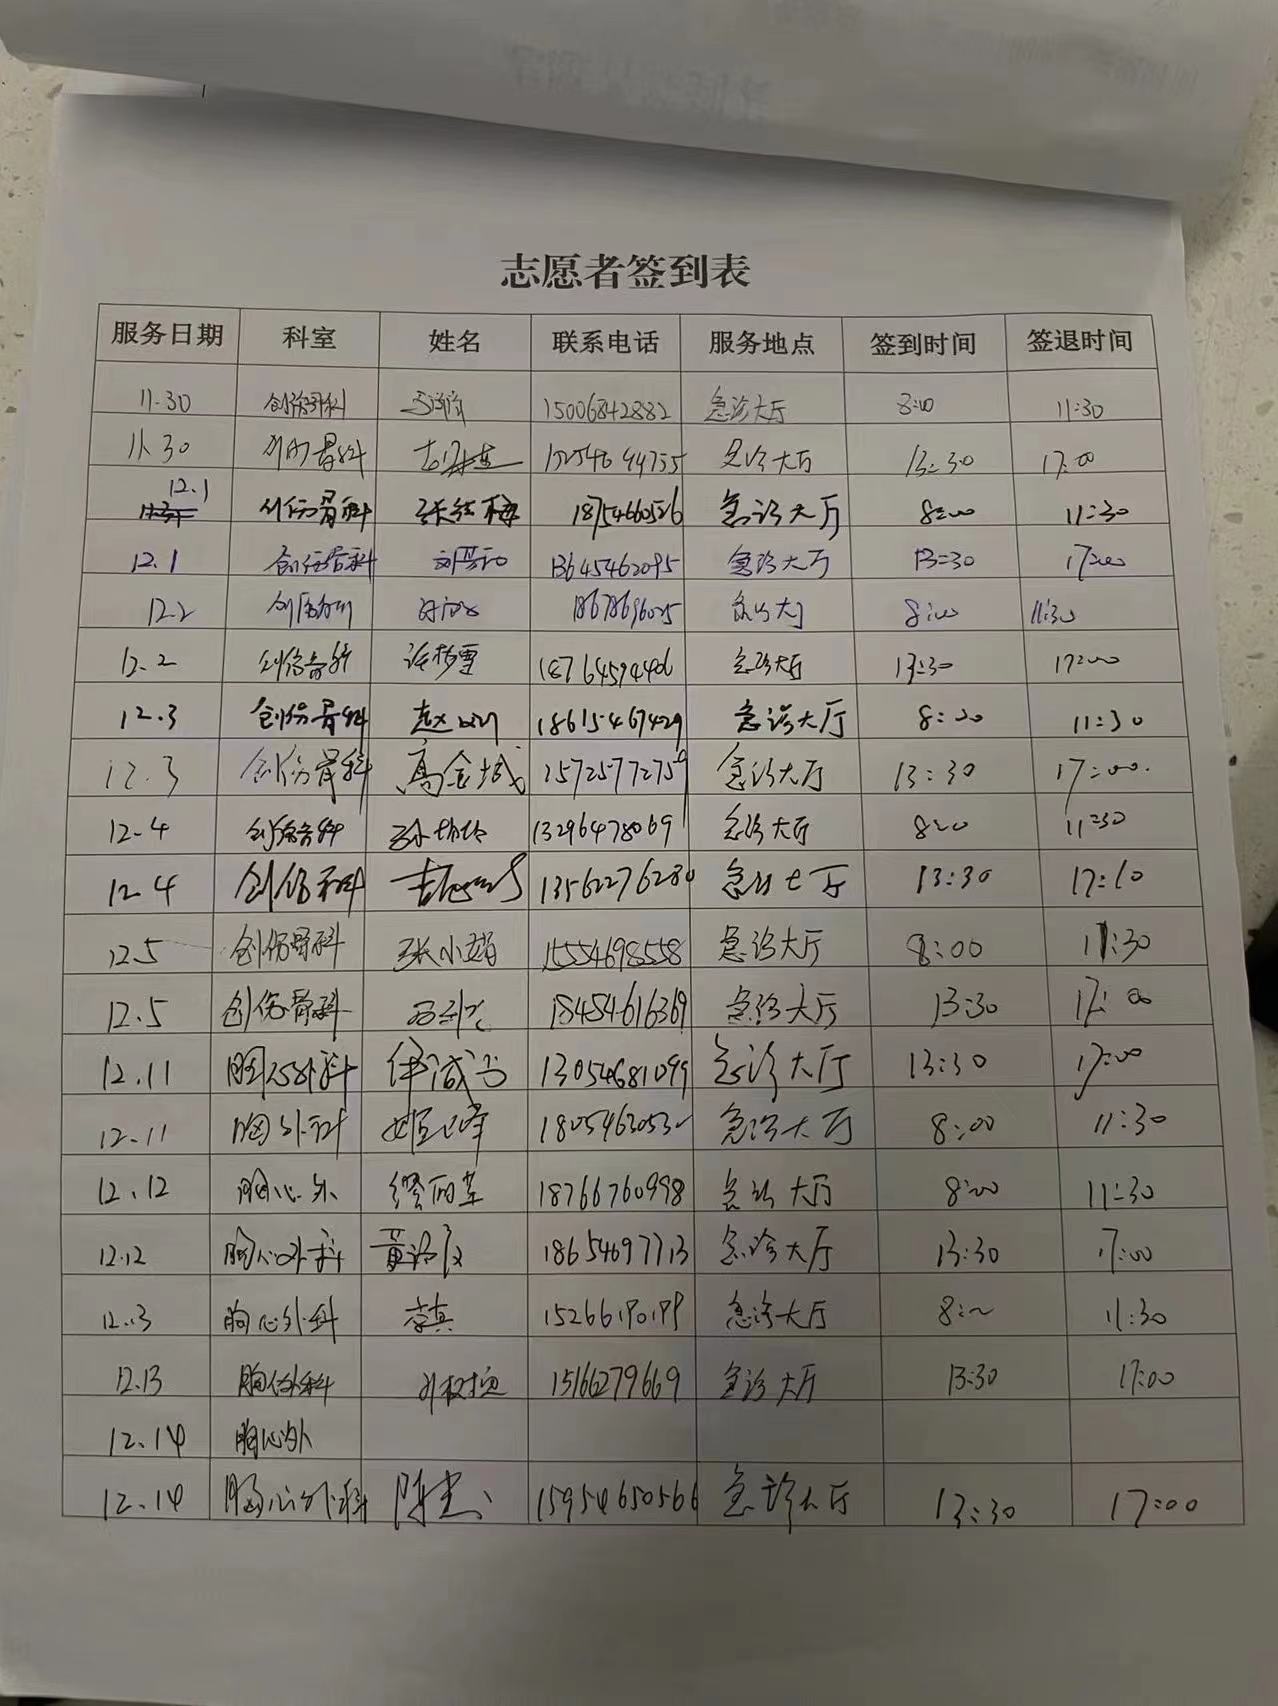 志愿者签到表
服务日期 科室 姓名 联系电话 服务地点 签到时间 签退时间
11.30 创伤骨科 15006842882 急诊大厅 8:00 11:30
11.30 创伤骨科 急诊大厅 13:30 17:00
12.1 创伤骨科 18754660526 急诊大厅 8:00 11:30
12.1 创伤骨科 13645462095 急诊大厅 13:30 17:00
12.2 急诊大厅 8:00 11:30
12.2 创伤骨科 18764594406 急诊大厅 13:30 17:00
12.3 创伤骨科 赵 18615467429 急诊大厅 8:00 11:30
12.3 创伤骨科 高金城 15725772759 急诊大厅 13:30 17:00.
12.4 创伤骨科 13296478069 急诊大厅 8:00 11:30
12.4 创伤骨科 13562276280 急诊大厅 13:30 17:10
12.5 创伤骨科 张小娟 15554698558 急诊大厅 8:00 11:30
12.5 创伤骨科 18454616369 急诊大厅 13:30 17:00
12.11 13054681099 急诊大厅 13:30 17:00
12.11 胸外科 急诊大厅 8:00 11:30
12.12 胸心外 缪 18766760998 急诊大厅 8:00 11:30
12.12 胸心外科 黄 18654697713 急诊大厅 13:30 17:00
12.13 胸心外科 李真 15266190199 急诊大厅 8:00 11:30
12.13 胸心外科 15166279669 急诊大厅 13:30 17:00
12.14 胸心外
12.14 胸心外科 陈杰 15954650566 急诊大厅 13:30 17:00